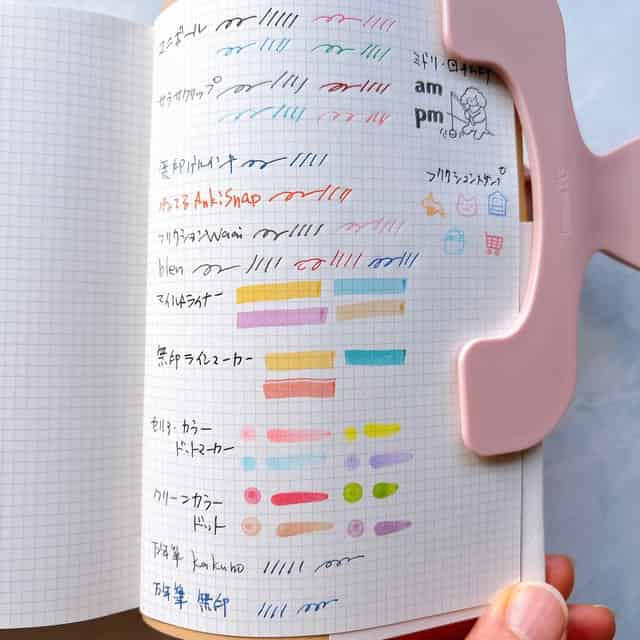 ユニボール
サラサクリップ
ミドリ・回転印
am
pm
無印ゲルインキ
ゼブラ AnkiSnap
フリクションWaai
フリクションスタンプ
blen
マイルドライナー
無印ラインマーカー
カラー
ドットマーカー
クリーンカラー
ドット
万年筆 kakuno
万年筆 無印